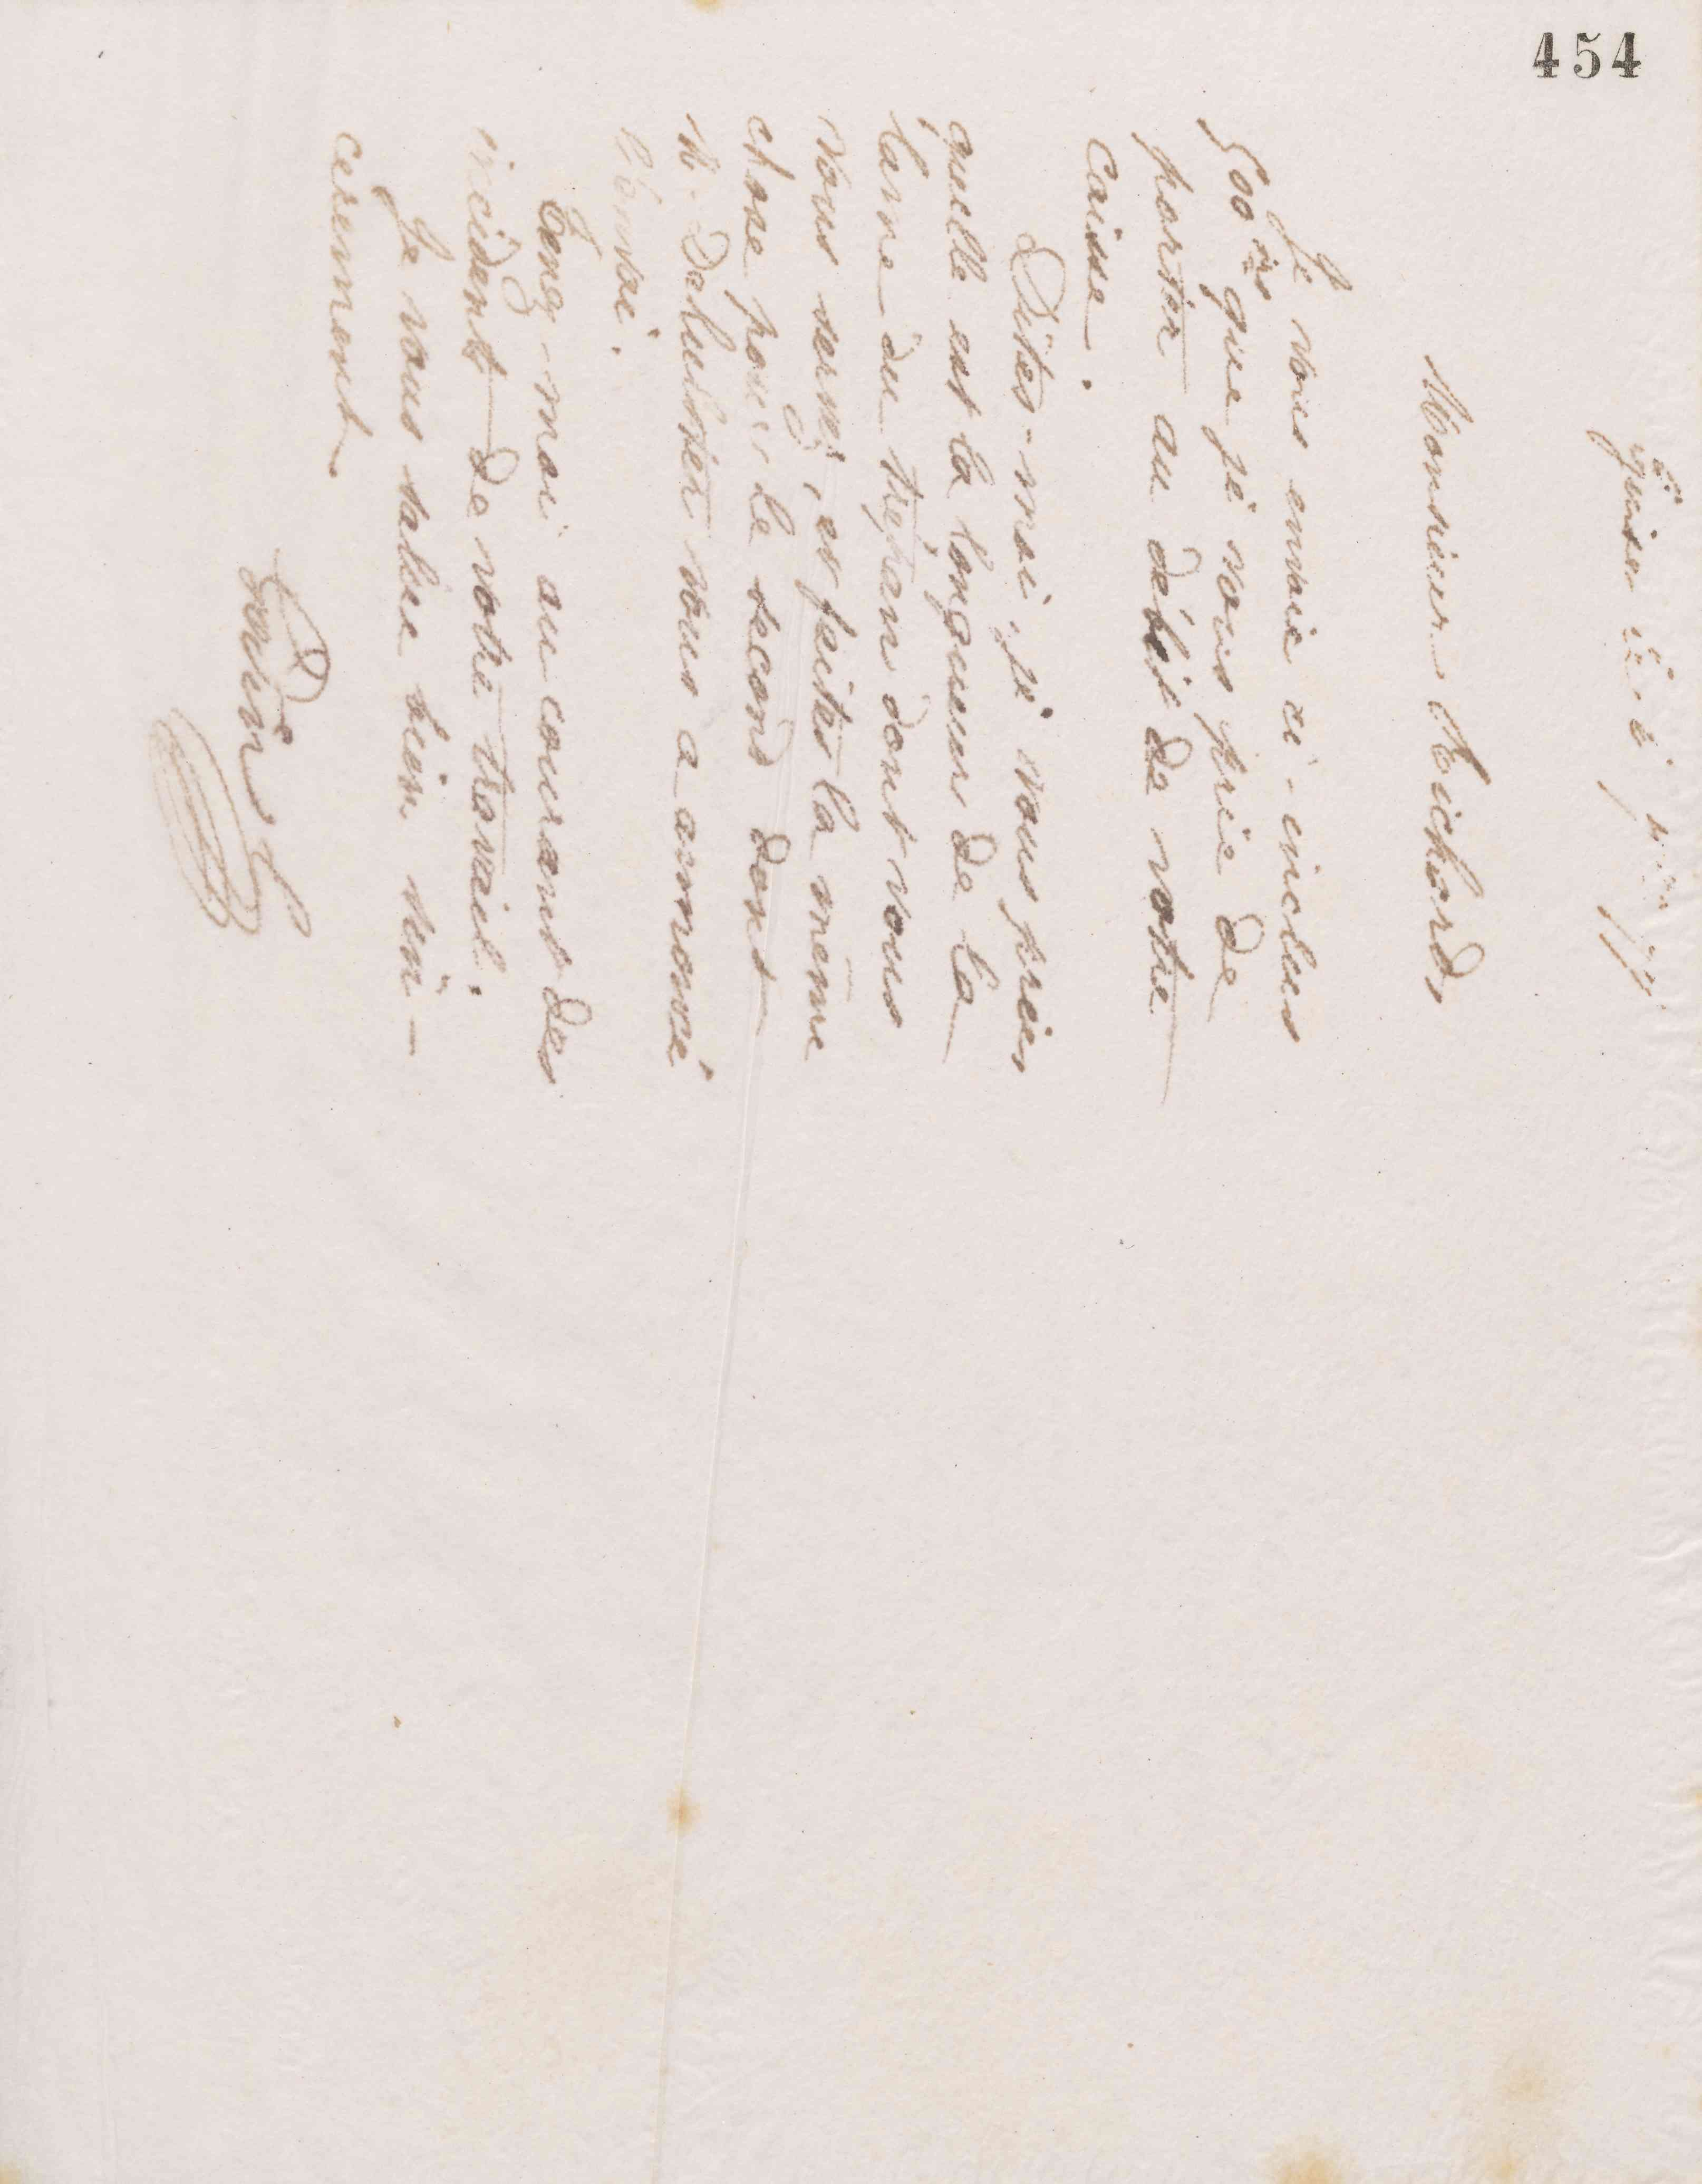 454
Guise
Monsieur Richard,
Je vous envoie ci-inclus
500 frs que je vous prie de
porter au débit de votre
caisse.
Dites-moi, je vous prie,
quelle est la longueur de la
lame du trépan dont vous
vous servez, et faites la même
chose pour le second dont
M. Delustier vous a annoncé
l'envoi.
Tenez-moi au courant des
incidents de votre travail.
Je vous salue bien sin-
cerement.
Godin